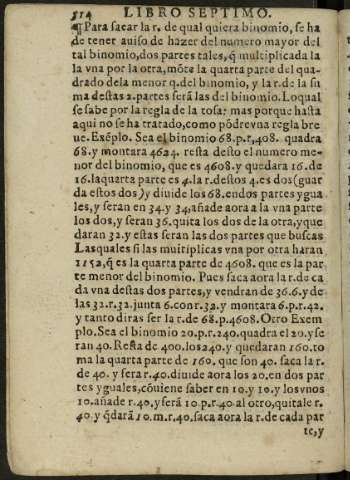 514 LIBRO SEPTIMO.
¶Para sacar la r. de qual quiera binomio, se ha
de tener auiso de hazer del numero mayor del
tal binomio, dos partes tales, q̃ multiplicada la
la vna por la otra, mõte la quarta parte del qua-
drado dela menor q. del binomio, y la r. de la su
ma destas 2. partes serã las del binomio. Lo qual
se sabe por la regla de la cosa: mas porque hasta
aqui no se ha tratado, como põdre vna regla bre
ue. Exẽplo. Sea el binomio 68. p. r, 408. quadra
68. y montara 4624. resta desto el numero me-
nor del binomio, que es 4608. y quedara 16. de
16. la quarta parte es 4. la r. destos 4. es dos (guar
da estos dos) y diuide los 68. en dos partes ygua
les, y seran en 34. y 34, añade aora a la vna parte
los dos, y seran 36. quita los dos de la otra, y que
daran 32. y estas seran las dos partes que buscas
Las quales si las multiplicas vna por otra haran
1152, q̃ es la quarta parte de 4608. que es la par
te menor del binomio. Pues saca aora la r. de ca
da vna destas dos partes, y vendran de 36. 6. y de
las 32. r. 32. junta 6. con r. 32. y montara 6. p. r. 42.
y tanto diras ser la r. de 68. p. 4608. Otro Exem
plo. Sea el binomio 20. p. r. 240. quadra el 20. y se
ran 40. Resta de 400. los 240. y quedaran 160. to
ma la quarta parte de 160. que son 40. saca la r.
de 40. y sera r. 40. diuide aora los 20. en dos par
tes yguales, cõuiene saber en 10. y 10. y los vnos
10. añade r. 40, y serã 10. p. r. 40. al otro, quitale r.
40. y q̃dará 10. m. r. 40. saca aora la r. de cada par
te, y